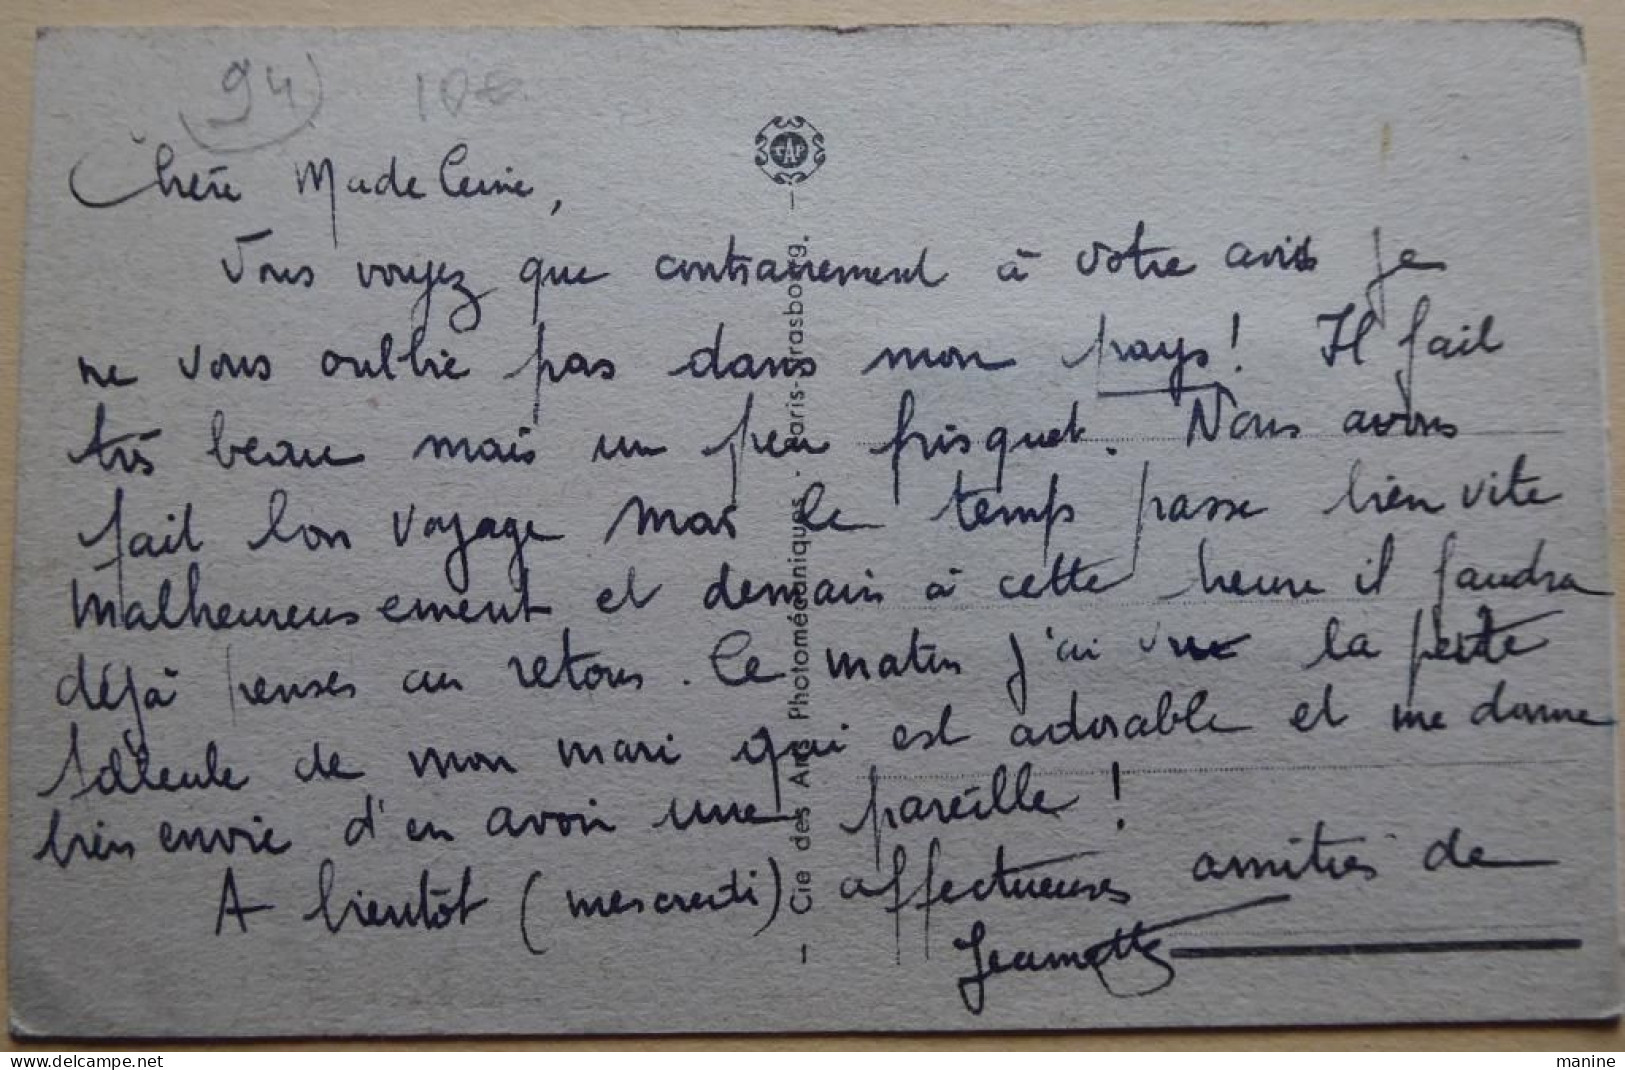 94 10€
Chère Madeleine,
Vous voyez que contrairement à votre avis je
ne vous oublie pas dans mon pays! Il fait
très beau mais un peu frisquet. Nous avons
fait bon voyage mais le temps passe bien vite
malheureusement et demain à cette heure il faudra
déjà penser au retour. Ce matin j'ai vu la petite
filleule de mon mari qui est adorable et me donne
bien envie d'en avoir une pareille!
A bientôt (mercredi) affectueuses amitiés de
Jeannette
CAP
— Cie des Arts Photomécaniques. - Paris-Strasbourg. —
delcampe.net
manine